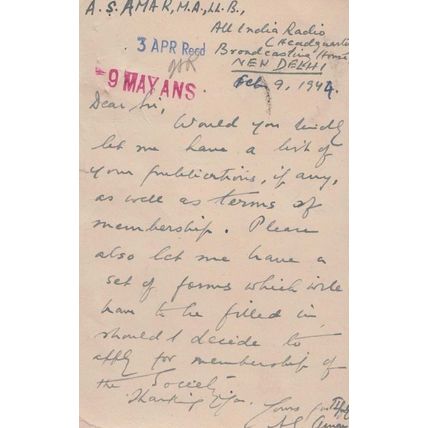 A. S. AMAR, M.A., LL.B.,
All India Radio
(Headquarters
3 APR Recd
Broadcasting House
NEW DELHI
-9 MAY ANS
Feb 9, 1944.
Dear Sir,
Would you kindly
let me have a list of
your publications, if any,
as well as terms of
membership. Please
also let me have a
set of forms which will
have to be filled in,
should I decide to
apply for membership of
the Society.
Thanking you.
Yours
A S Amar